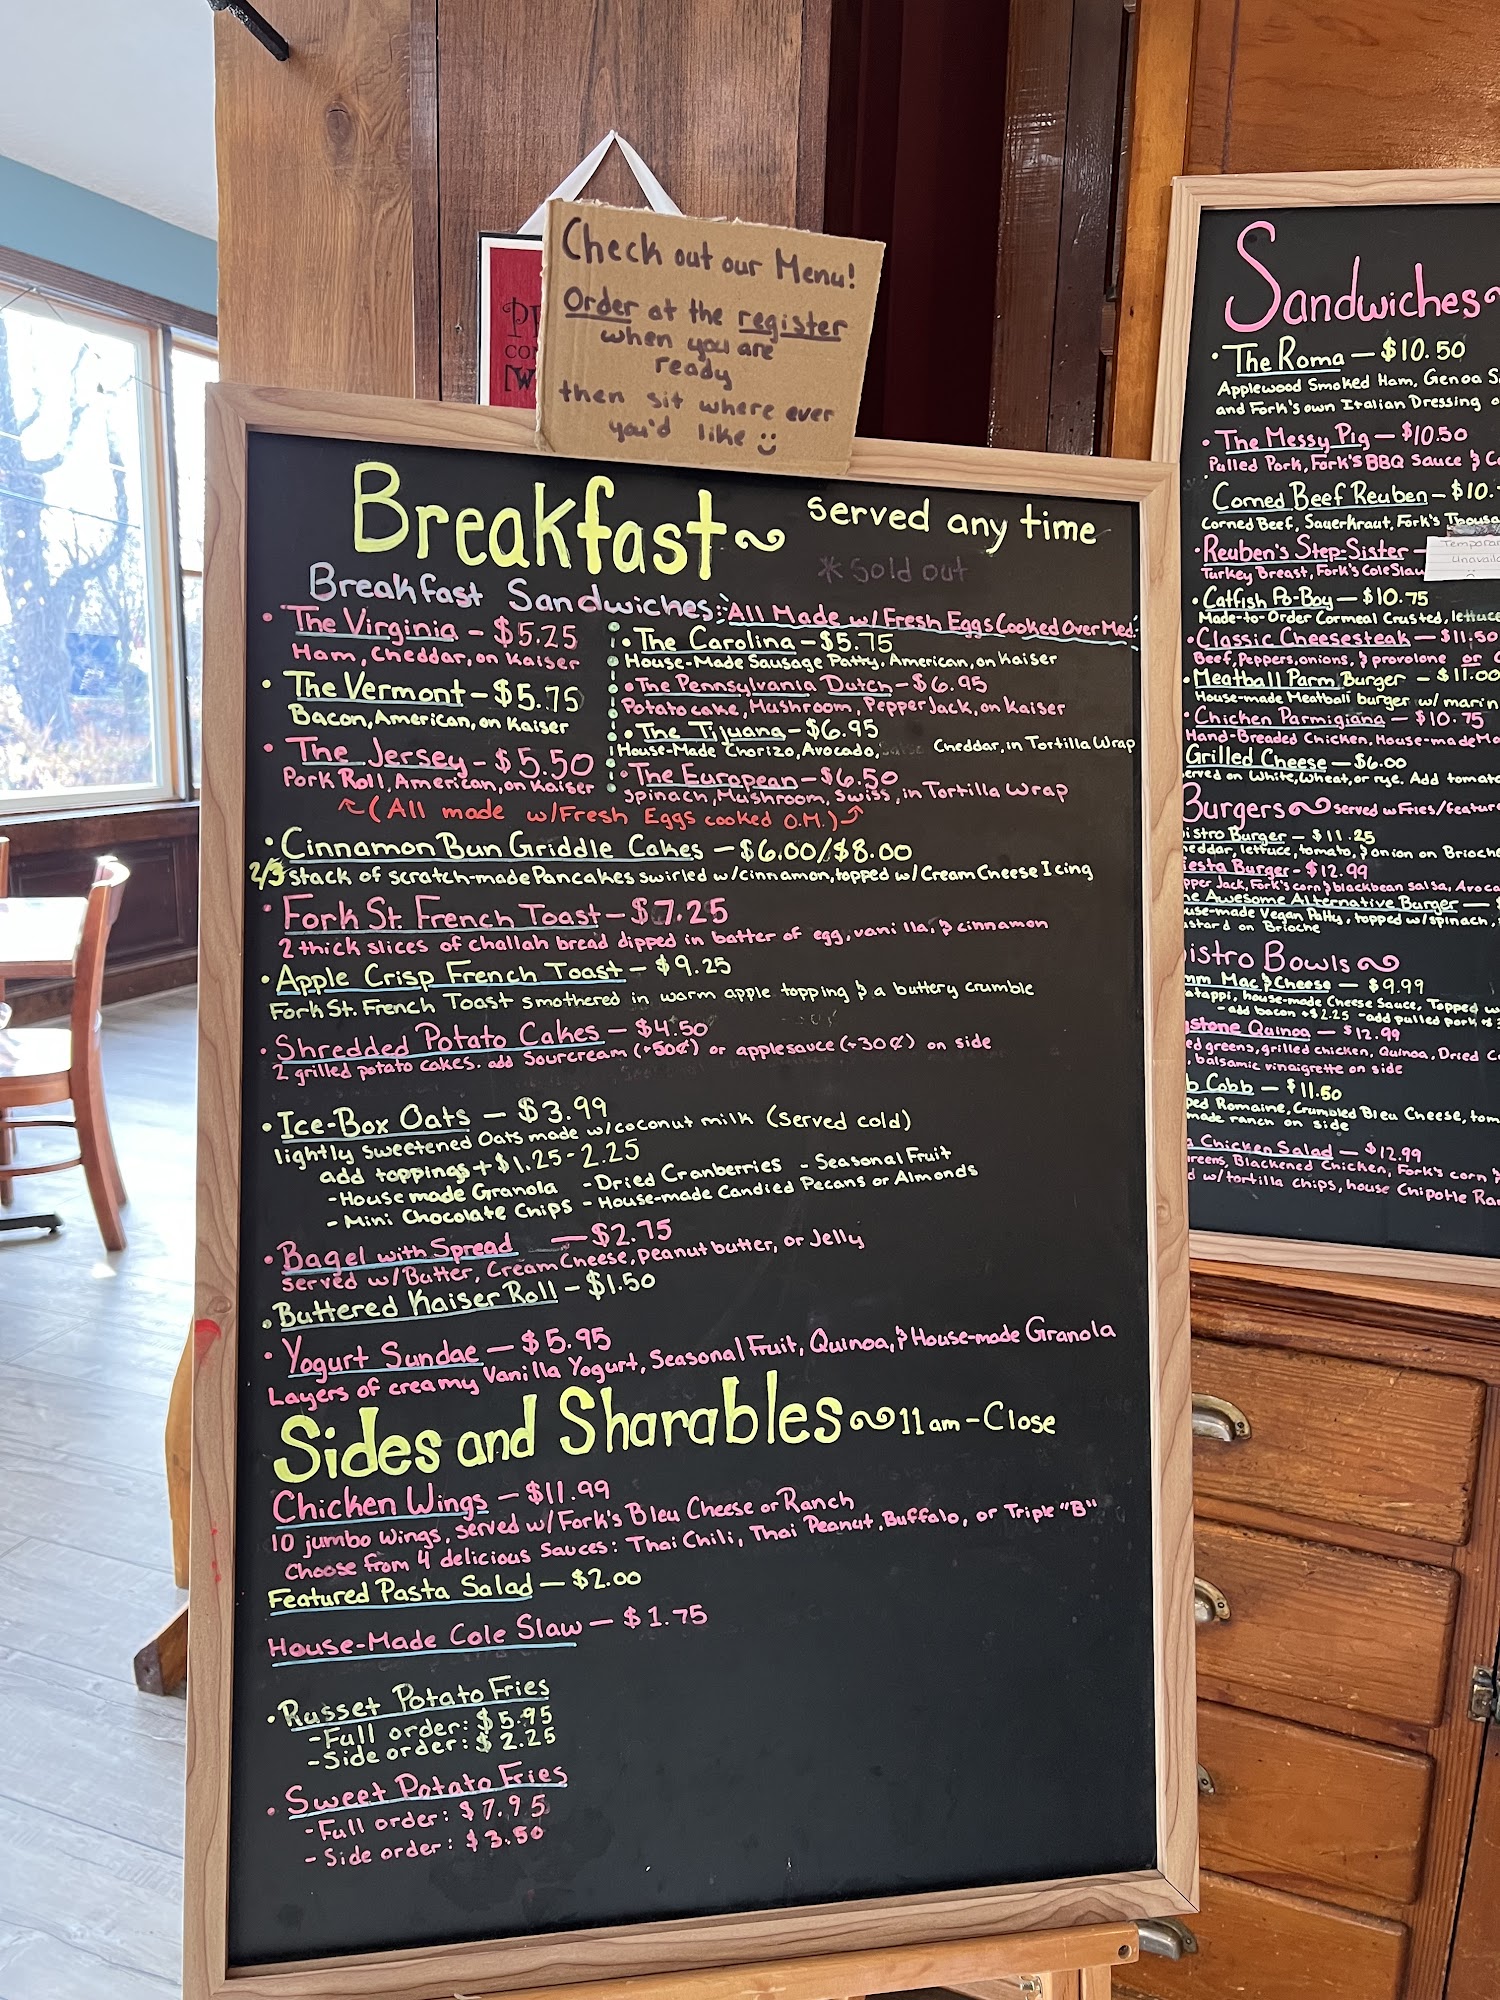 Check out our Menu!
Order at the register
when you are
ready
then sit where ever
you'd like
Breakfast~ served any time
*Sold out
Breakfast Sandwiches: All Made w/Fresh Eggs Cooked Over Med.
• The Virginia - $5.25
Ham, Cheddar, on Kaiser
• The Vermont - $5.75
Bacon, American, on Kaiser
• The Jersey - $5.50
Pork Roll, American, on Kaiser
• The Carolina - $5.75
House-Made Sausage Patty, American, on Kaiser
• The Pennsylvania Dutch - $6.95
Potato cake, Mushroom, Pepper Jack, on Kaiser
• The Tijuana - $6.95
House-Made Chorizo, Avocado, Cheddar, in Tortilla Wrap
• The European - $6.50
Spinach, Mushroom, Swiss, in Tortilla Wrap
(All made w/Fresh Eggs cooked O.M.)
• Cinnamon Bun Griddle Cakes - $6.00/$8.00
2/3 stack of scratch-made Pancakes swirled w/cinnamon, topped w/Cream Cheese Icing
• Fork St. French Toast - $7.25
2 thick slices of challah bread dipped in batter of egg, vanilla, & cinnamon
• Apple Crisp French Toast - $9.25
Fork St. French Toast smothered in warm apple topping & a buttery crumble
• Shredded Potato Cakes - $4.50
2 grilled potato cakes. add Sourcream (+50¢) or applesauce (+30¢) on side
• Ice-Box Oats - $3.99
lightly sweetened Oats made w/coconut milk (Served cold)
add toppings + $1.25-2.25
- House made Granola - Dried Cranberries - Seasonal Fruit
- Mini Chocolate Chips - House-made Candied Pecans or Almonds
• Bagel with Spread — $2.75
served w/Butter, Cream Cheese, peanut butter, or Jelly
• Buttered Kaiser Roll - $1.50
• Yogurt Sundae - $5.95
Layers of creamy Vanilla Yogurt, Seasonal Fruit, Quinoa, & House-made Granola
Sides and Sharables ~ 11am - Close
Chicken Wings - $11.99
10 jumbo wings, served w/Fork's Bleu Cheese or Ranch
Choose from 4 delicious Sauces: Thai Chili, Thai Peanut, Buffalo, or Triple "B"
Featured Pasta Salad - $2.00
House-Made Cole Slaw - $1.75
• Russet Potato Fries
- Full order: $5.95
- Side order: $2.25
• Sweet Potato Fries
- Full order: $7.95
- Side order: $3.50
Sandwiches~
• The Roma - $10.50
Applewood Smoked Ham, Genoa
and Fork's own Italian Dressing
• The Messy Pig - $10.50
Pulled Pork, Fork's BBQ Sauce &
Corned Beef Reuben - $10.
Corned Beef, Sauerkraut, Fork's
• Reuben's Step-Sister -
Turkey Breast, Fork's Cole Slaw
• Catfish Po-Boy - $10.75
Made-to-Order Cornmeal Crusted, lettuce
• Classic Cheesesteak - $11.50
Beef, Peppers, onions, & provolone or
• Meatball Parm Burger - $11.00
House-made Meatball burger w/
• Chicken Parmigiana - $10.75
Hand-Breaded Chicken, House-made
Grilled Cheese - $6.00
on White, Wheat, or rye. Add
Burgers ~ served w/Fries/
Burger - $11.25
lettuce, tomato, & onion on Brioche
Burger - $12.99
Jack, Fork's corn & blackbean salsa,
Awesome Alternative Burger -
Vegan Patty, topped w/spinach,
on Brioche
Bowls ~
Mac & Cheese - $9.99
house-made Cheese Sauce, Topped
- add bacon +$2.25 - add pulled pork
Quinoa - $12.99
greens, grilled chicken, Quinoa, Dried
balsamic vinaigrette on side
Cobb - $11.50
Romaine, Crumbled Bleu Cheese,
made ranch on side
Chicken Salad - $12.99
Blackened Chicken, Fork's corn
w/tortilla chips, house Chipotle